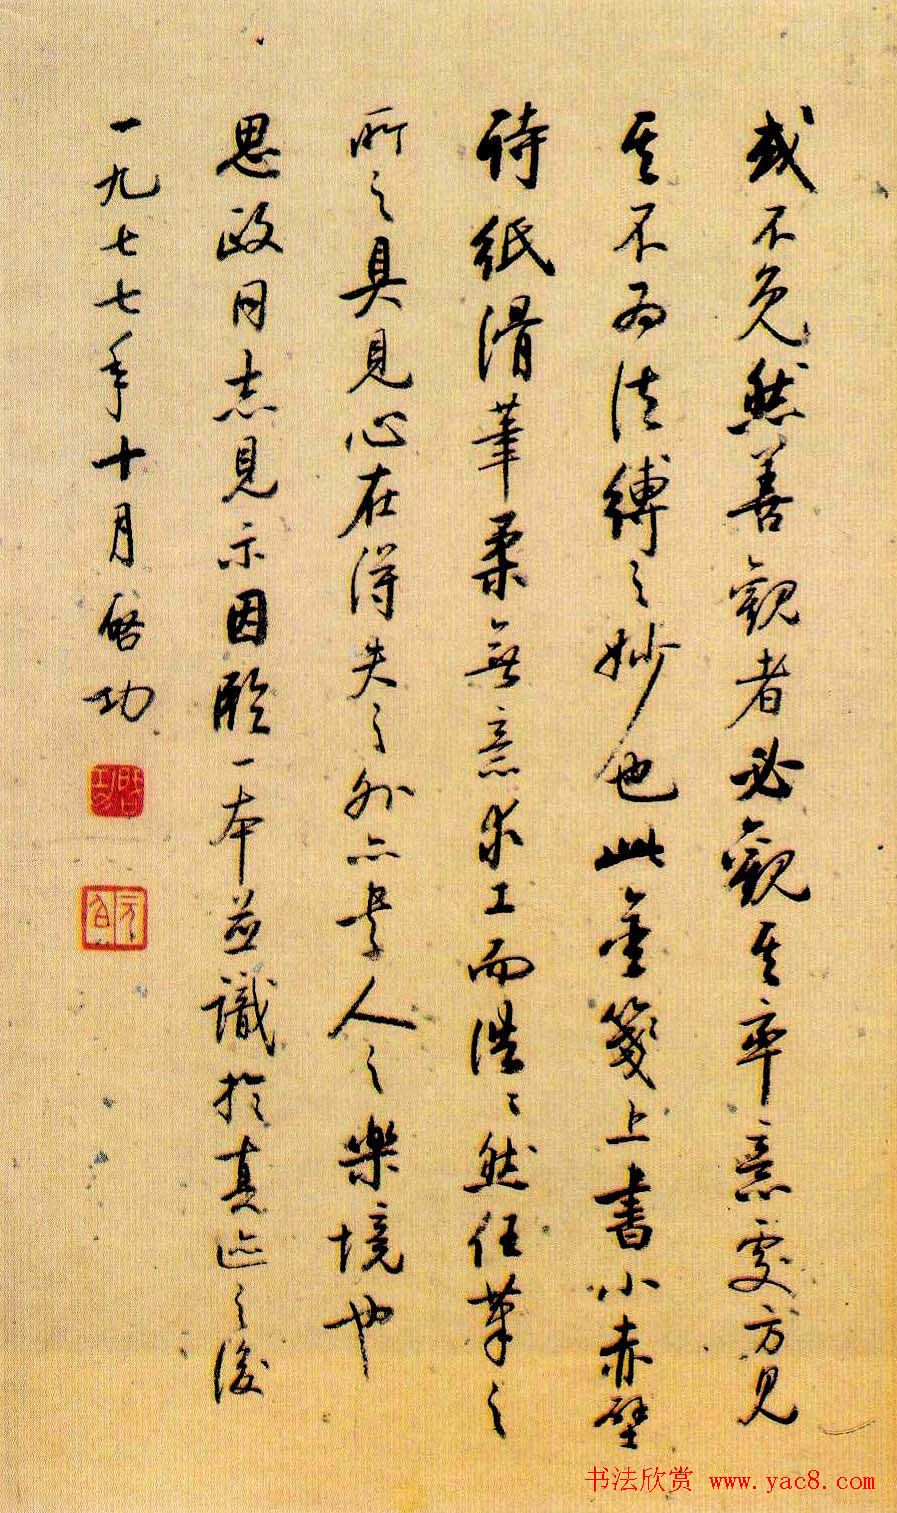 或不免然善觀者必觀其率意處方見
其不為法縛之妙也此金箋上書小赤壁
詩紙滑筆柔無意求工而浩浩然任筆之
所之具見心在得失之外亦書人之樂境也
思政同志見示因臨一本並識於真迹之後
一九七七年十月啓功
啓功
元白
书法欣赏 www.yac8.com